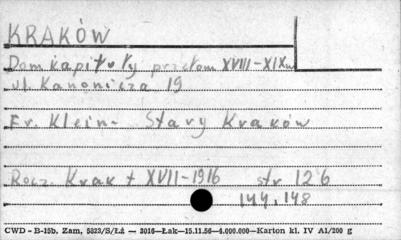 KRAKÓW
Dom kapituły przełom XVIII-XIXw
ul. Kanonicza 19
Fr. Klein- Stary Kraków
Rocz. Krak t XVII-1916 str 126
144, 148
CWD - B-15b, Zam, 5823/S/Łż — 3016—Łak—15.11.56—4.000.000—Karton kl. IV A1/200 g